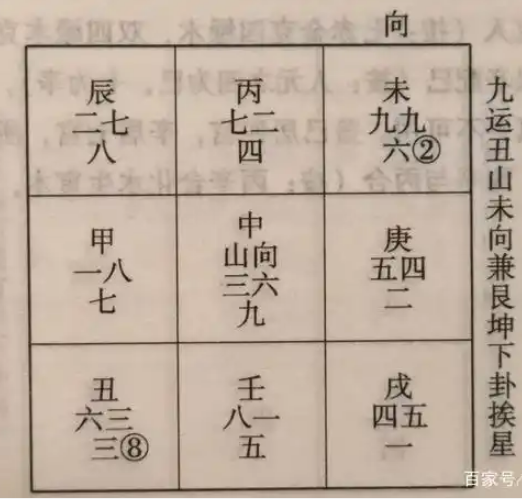 向
辰
二七
八
丙
七二
四
未
九九
六②
甲
一八
七
中
山向
三六
九
庚
五四
二
丑
六三
三⑧
壬
八一
五
戌
四五
一
九运丑山未向兼艮坤下卦挨星
百家号